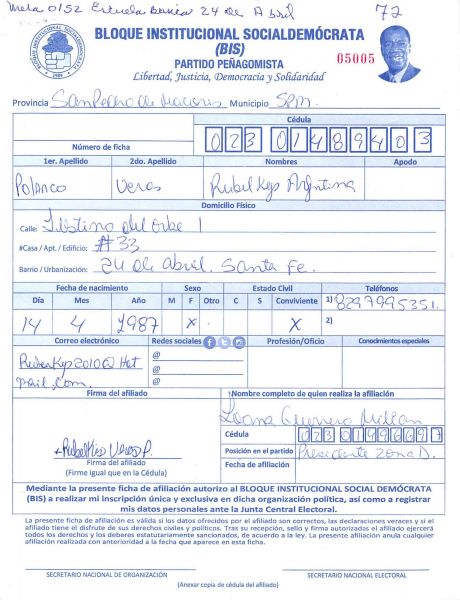 Mesa 0152 Escuela Basica 24 de Abril 72
BLOQUE INSTITUCIONAL SOCIALDEMÓCRATA
(BIS)
05005
PARTIDO PEÑAGOMISTA
Libertad, Justicia, Democracia y Solidaridad
Provincia San Pedro de Macoris Municipio SPM.
Cédula
Número de ficha 023 0148940 3
1er. Apellido 2do. Apellido Nombres Apodo
Polanco Veras Rubel Kys Argentina
Domicilio Físico
Calle: Justino del Orbe 1
#Casa / Apt. / Edificio: #33
Barrio / Urbanización: 24 de abril. Santa Fe.
Fecha de nacimiento Sexo Estado Civil Teléfonos
Día Mes Año M F Otro C S Conviviente 1) 8297995351.
14 4 1987 X X 2)
Correo electrónico Redes sociales Profesión/Oficio Conocimientos especiales
@
@
@
Firma del afiliado Nombre completo de quien realiza la afiliación
Guerrero Millan
Cédula 023 0149669 7
Firma del afiliado Posición en el partido Presidente Zona D.
(Firme igual que en la Cédula) Fecha de afiliación
Mediante la presente ficha de afiliación autorizo al BLOQUE INSTITUCIONAL SOCIAL DEMÓCRATA
(BIS) a realizar mi inscripción única y exclusiva en dicha organización política, así como a registrar
mis datos personales ante la Junta Central Electoral.
La presente ficha de afiliación es válida si los datos ofrecidos por el afiliado son correctos, las declaraciones veraces y si el
afiliado tiene el disfrute de sus derechos civiles y políticos. Tras su recepción, sello y firma autorizados el afiliado ejercerá
todos los derechos y los deberes estatutariamente sancionados, de acuerdo a la ley. La presente afiliación anula cualquier
afiliación realizada con anterioridad a la fecha que aparece en esta ficha.
SECRETARIO NACIONAL DE ORGANIZACIÓN SECRETARIO NACIONAL ELECTORAL
(Anexar copia de cédula del afiliado)